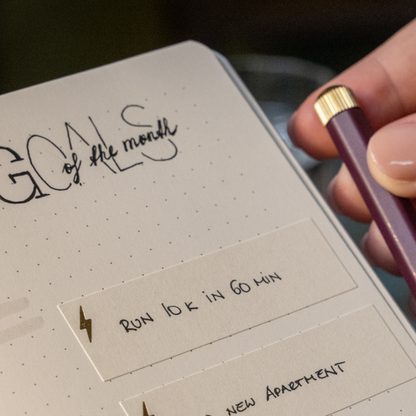 GOALS
of the month
RUN 10K IN 60 MIN
NEW APARTMENT